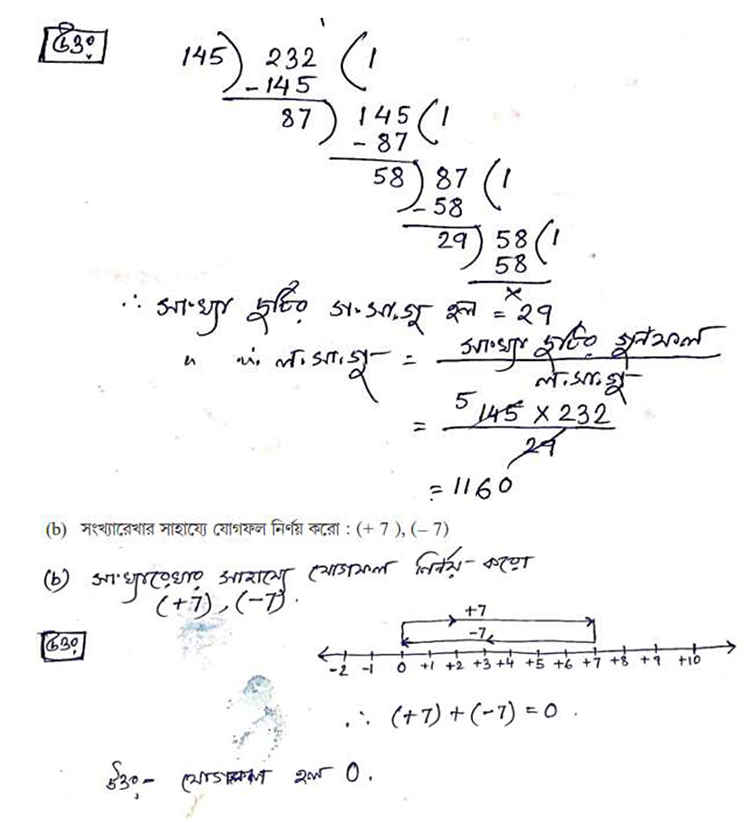 উত্তরঃ
145) 232 (1
-145
87) 145 (1
- 87
58) 87 (1
- 58
29) 58 (1
58
×
∴ সংখ্যা দুটির গ.সা.গু হল = 29
" " ল.সা.গু = সংখ্যা দুটির গুনফল
ল.সা.গু
= 5 145 × 232
29
= 1160
(b) সংখ্যারেখার সাহায্যে যোগফল নির্ণয় করো : (+ 7 ), (– 7)
(b) সংখ্যারেখার সাহায্যে যোগফল নির্ণয় করো
(+7), (-7).
উত্তরঃ
+7
-7
-2 -1 0 +1 +2 +3 +4 +5 +6 +7 +8 +9 +10
∴ (+7) + (-7) = 0 .
উত্তরঃ- যোগফল হল 0.